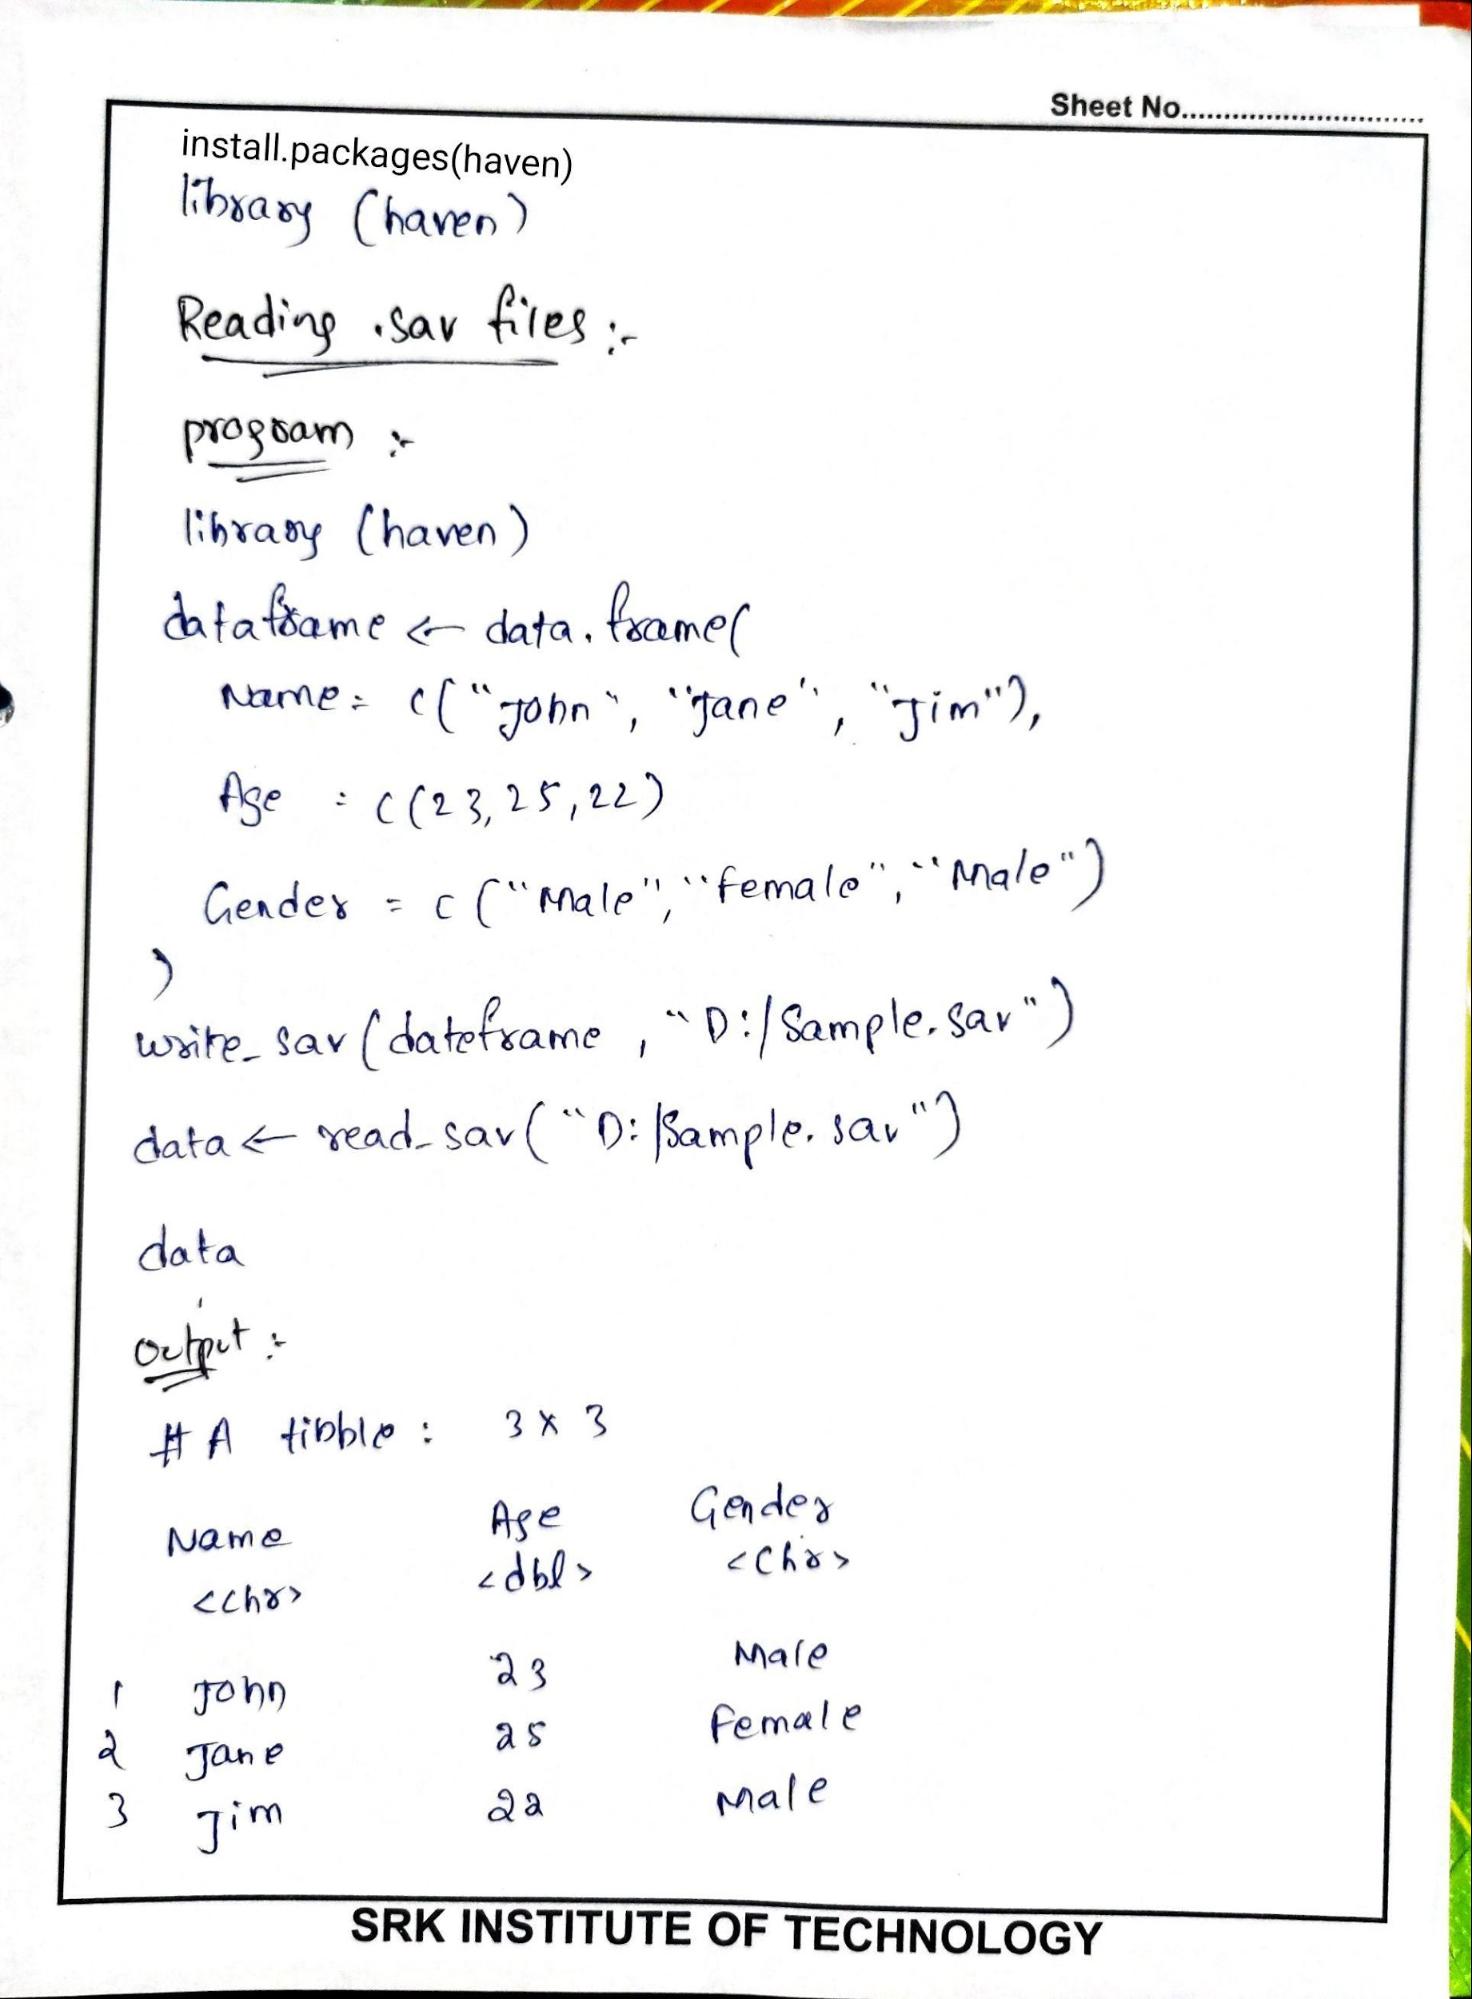 Sheet No..............................
install.packages(haven)
library (haven)
Reading .sav files :-
program :-
library (haven)
dataframe <- data.frame(
Name = c("John", "Jane", "Jim"),
Age = c(23, 25, 22)
Gender = c("Male", "female", "Male")
)
write_sav(dateframe, "D:/Sample.sav")
data <- read_sav("D:/Sample.sav")
data
output :-
# A tibble : 3 x 3
Name Age Gender
<chr> <dbl> <Chr>
1 John 23 Male
2 Jane 25 Female
3 Jim 22 Male
SRK INSTITUTE OF TECHNOLOGY